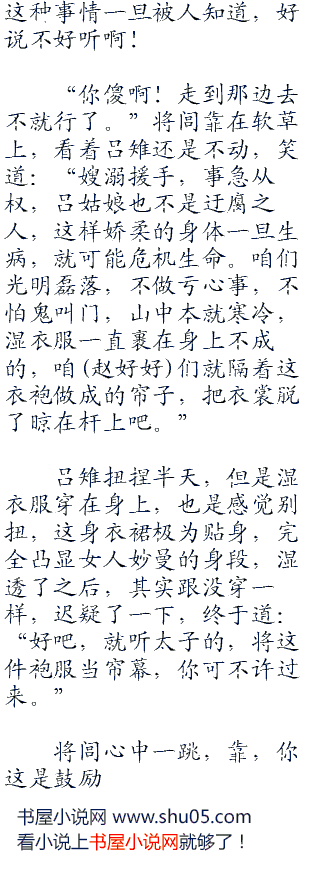 这种事情一旦被人知道，好
说不好听啊！
“你傻啊！走到那边去
不就行了。”将闾靠在软草
上，看着吕雉还是不动，笑
道：“嫂溺援手，事急从
权，吕姑娘也不是迂腐之
人，这样娇柔的身体一旦生
病，就可能危机生命。咱们
光明磊落，不做亏心事，不
怕鬼叫门，山中本就寒冷，
湿衣服一直裹在身上不成
的，咱(赵好好)们就隔着这
衣袍做成的帘子，把衣裳脱
了晾在杆上吧。”
吕雉扭捏半天，但是湿
衣服穿在身上，也是感觉别
扭，这身衣裙极为贴身，完
全凸显女人妙曼的身段，湿
透了之后，其实跟没穿一
样，迟疑了一下，终于道：
“好吧，就听太子的，将这
件袍服当帘幕，你可不许过
来。”
将闾心中一跳，靠，你
这是鼓励
书屋小说网 www.shu05.com
看小说上书屋小说网就够了！